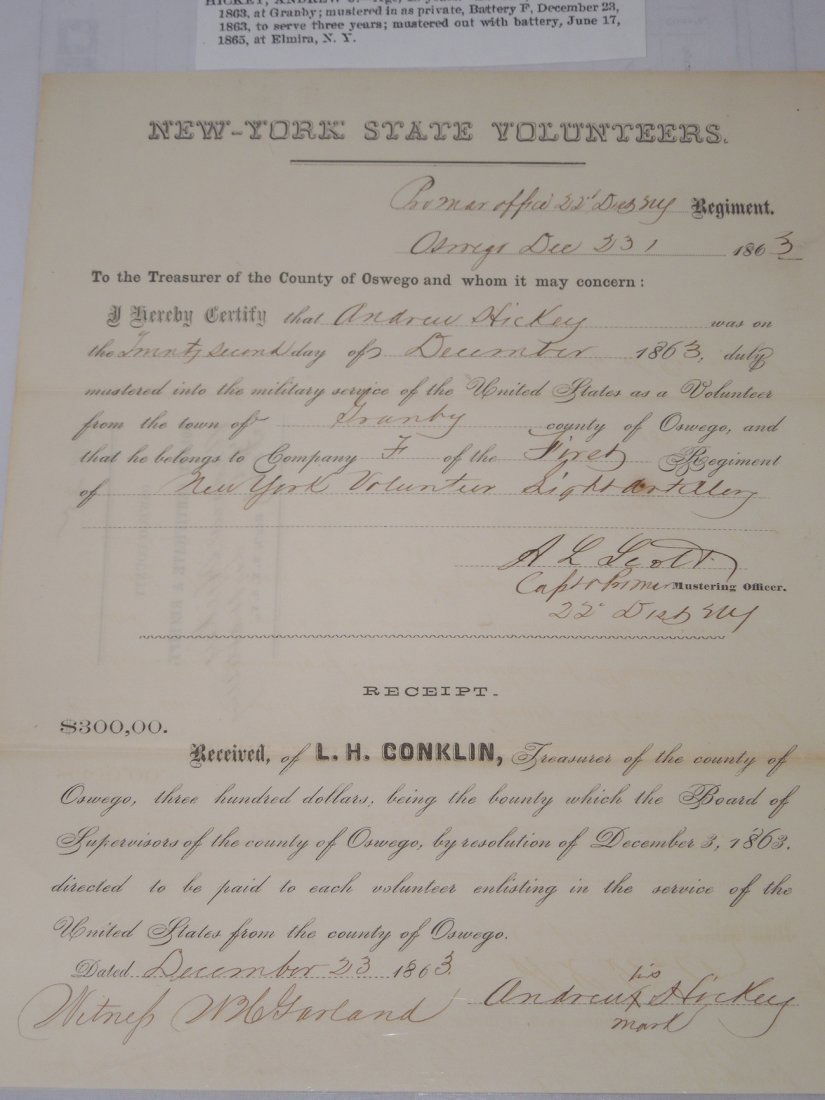 HICKEY, ANDREW
1863, at Granby; mustered in as private, Battery F, December 23,
1863, to serve three years; mustered out with battery, June 17,
1865, at Elmira, N. Y.
NEW-YORK STATE VOLUNTEERS.
Pro Mar office 22d Dist NY Regiment.
Oswego Dec 23 1863
To the Treasurer of the County of Oswego and whom it may concern:
I Hereby Certify that Andrew Hickey was on
the Twenty second day of December 1863, duly
mustered into the military service of the United States as a Volunteer
from the town of Granby county of Oswego, and
that he belongs to Company F of the First Regiment
of New York Volunteer Light Artillery
A L Scott
Capt & Pro Mar Mustering Officer.
22d Dist NY
RECEIPT.
$300,00.
Received, of L. H. CONKLIN, Treasurer of the county of
Oswego, three hundred dollars, being the bounty which the Board of
Supervisors of the county of Oswego, by resolution of December 3, 1863,
directed to be paid to each volunteer enlisting in the service of the
United States from the county of Oswego.
Dated December 23 1863
his
Andrew X Hickey
mark
Witness W H Garland